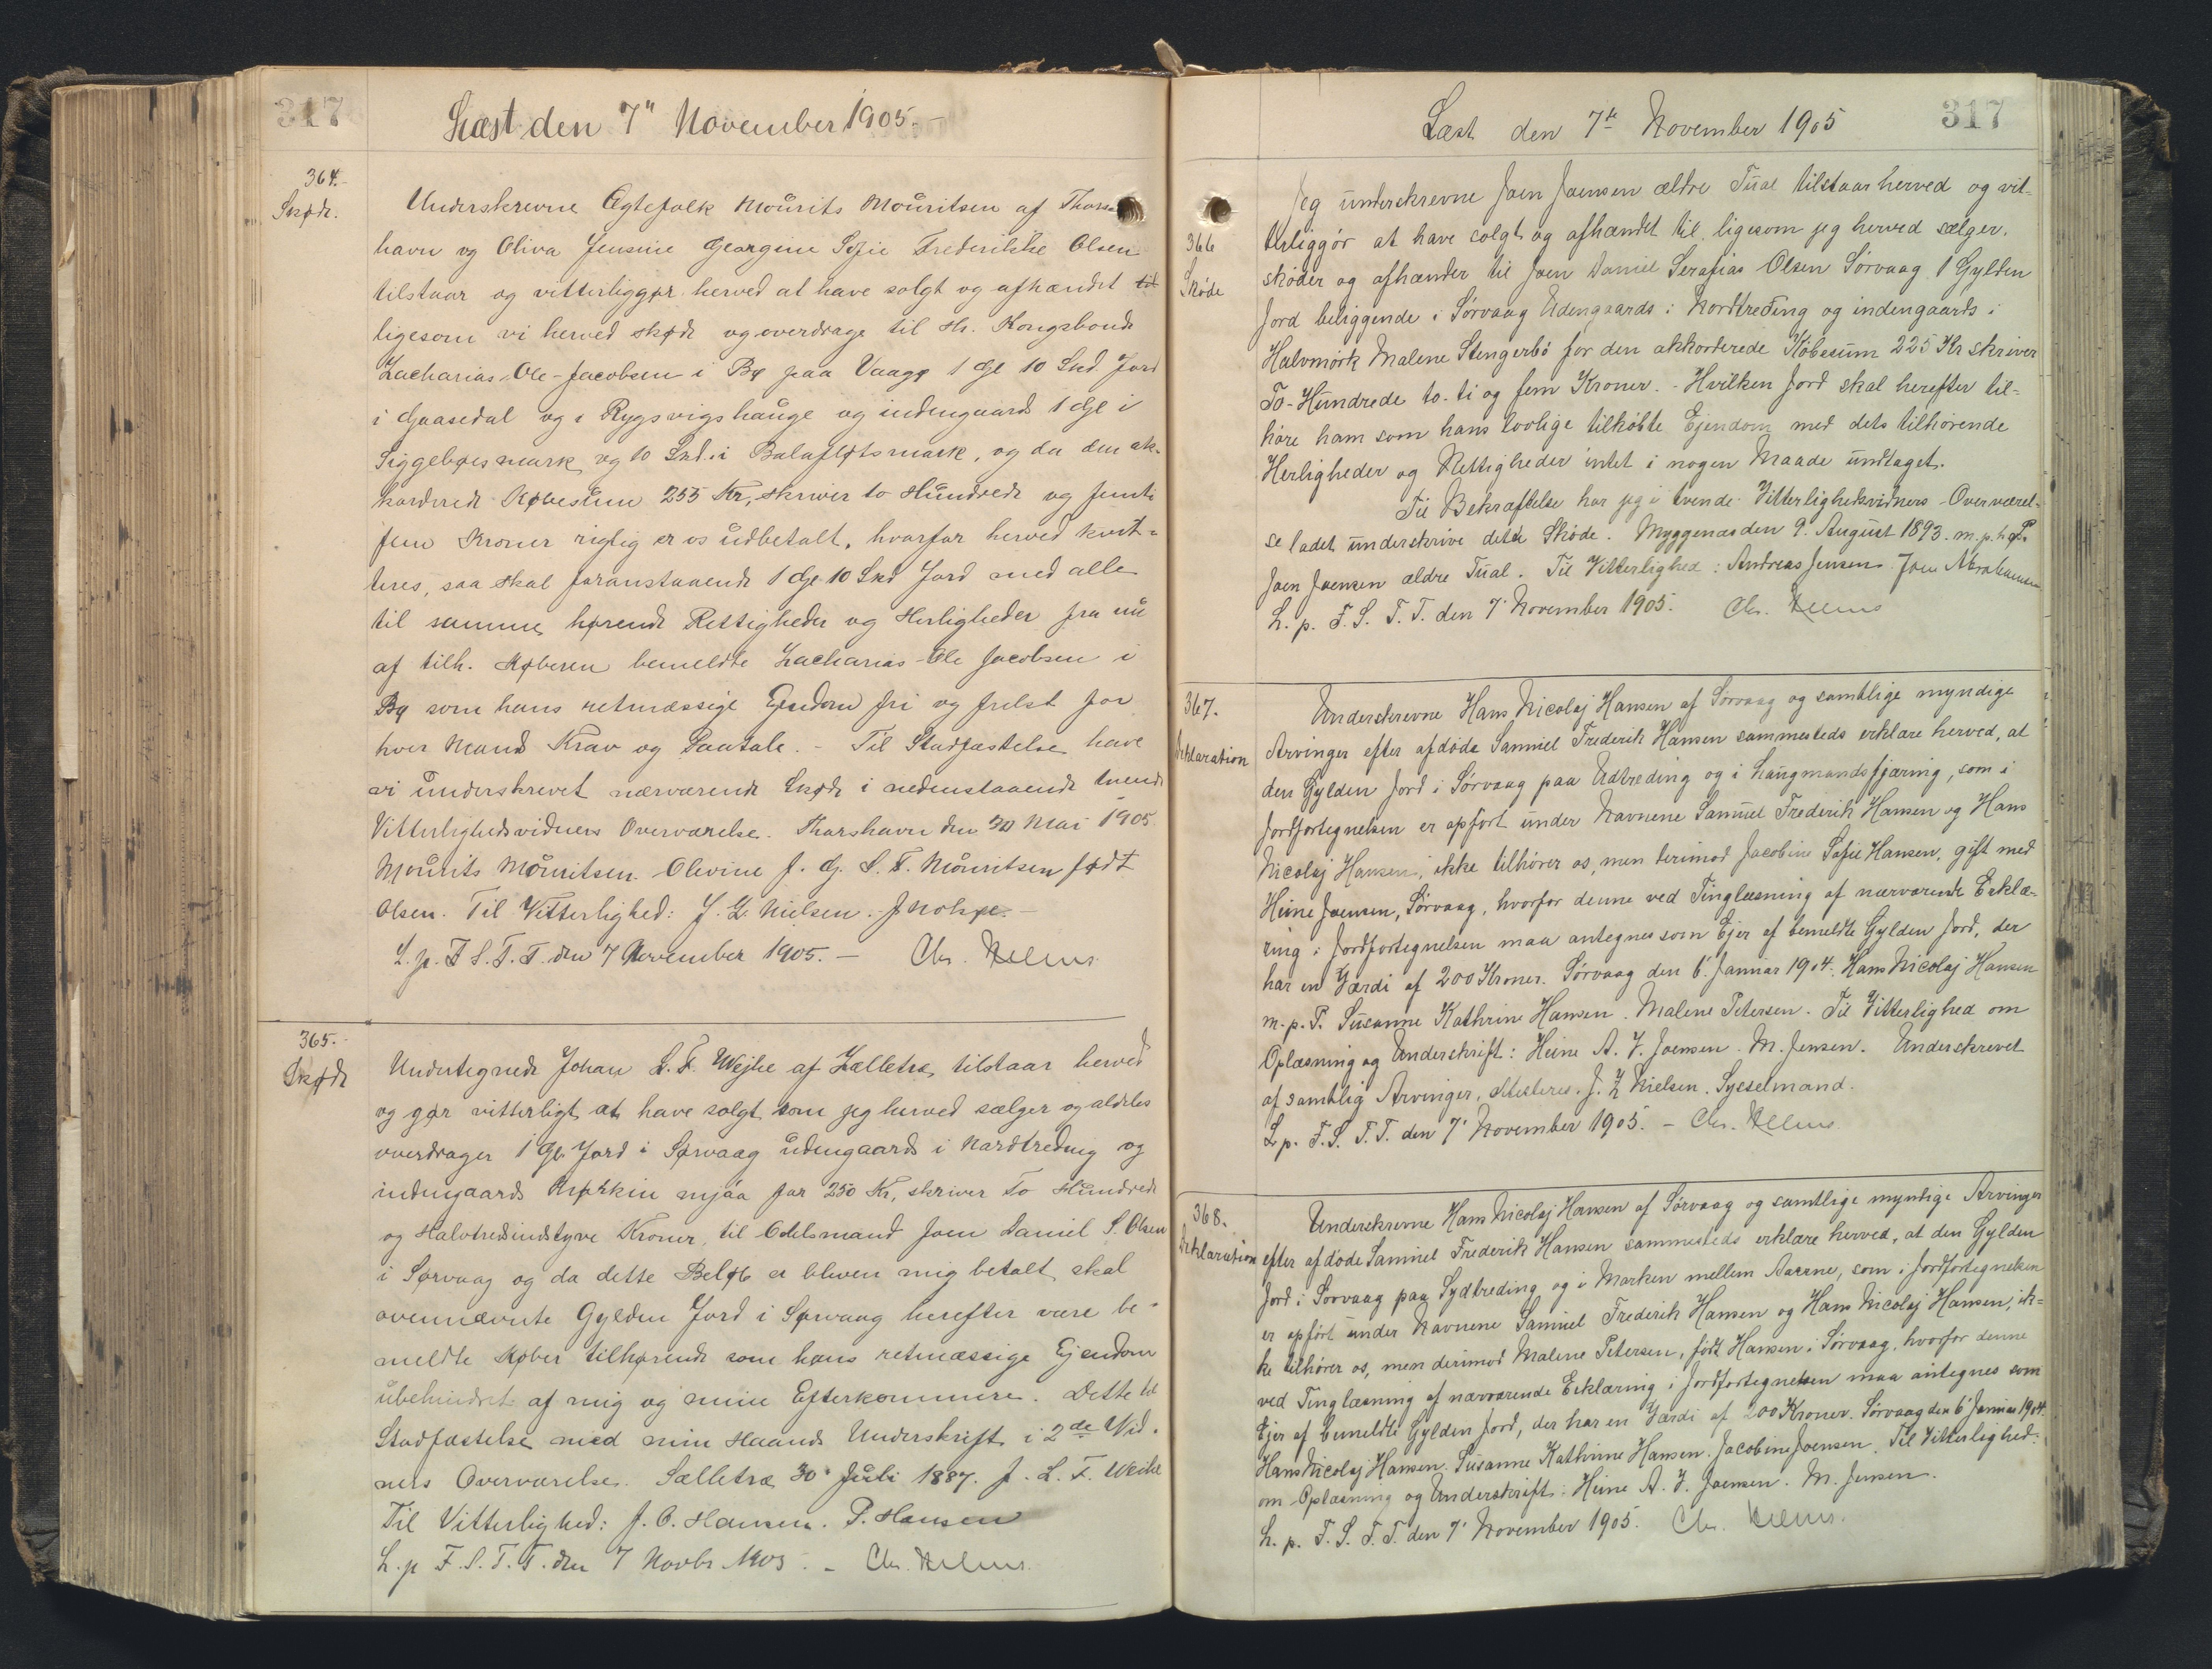 317
Læst den 7" November 1905.-
364.-
Skøde.
Underskrevne Egtefolk Mourits Mouritsen af Thors-
havn og Oliva Jensine Georgine Sofie Frederikke Olsen
tilstaar og vitterliggør herved at have solgt og afhændet til
ligesom vi herved skøde og overdrage til Hr. Kongsbonde
Zacharias-Ole-Jacobsen i By paa Vaagø 1 Gl 10 Skd Jord
i Gaasedal og i Rygsvigshauge og indengaards 1 Gl i
Siggebøesmark og 10 Skd. i Balafløtsmark, og da den ak-
korderede Købesum 255 Kr, skriver to Hundrede og femti
fem Kroner rigtig er os udbetalt, hvorfor herved kvit-
teres, saa skal foranstaaende 1 Gl. 10 Skd Jord med alle
til samme hørende Rettigheder og Herligheder fra nu
af tilh. Køberen bemeldte Zacharias-Ole Jacobsen i
By som hans retmæssige Ejendom fri og frelst for
hver Mands Krav og Paatale. - Til Stadfæstelse have
vi underskrevet nærværende Skøde i nedenstaaende tvende
Vitterlighedsvidners Overværelse. Thorshavn den 30 Mai 1905.
Mourits Mouritsen. Olevine J. G. S. F. Mouritsen født
Olsen. Til Vitterlighed: J. Z. Nielsen.
L. p. F. S. T. T. den 7 November 1905. - Chr.
365.-
Skøde
Undertegnede Johan L. F. Wejhe af Sælletræ tilstaar herved
og gør vitterligt at have solgt som jeg herved sælger og aldeles
overdrager 1 Gl. Jord i Sørvaag udengaards i Nordtreding og
indengaards njáa for 250 Kr, skriver To Hundrede
og Halvtredsindstyve Kroner, til Odelsmand Joen Daniel S. Olsen
i Sørvaag og da dette Beløb er bleven mig betalt, skal
ovennævnte Gylden Jord i Sørvaag herefter være be-
meldte Køber tilhørende som hans retmæssige Ejendom
ubehindret af mig og mine Efterkommere. Dette til
Stadfæstelse med min Haands Underskrift i 2de Vid-
ners Overværelse. Sælletræ 30 Juli 1887. J. L. F. Weihe
Til Vitterlighed: J. O. Hansen. P. Hansen
L. p F. S. T. T. den 7 Novbr 1905. - Chr.
317
Læst den 7de November 1905
366
Skøde
Jeg underskrevne Joen Joensen ældre Tual tilstaar herved og vit-
terliggör at have solgt og afhændet til, ligesom jeg herved sælger,
sköder og afhænder til Joen Daniel Serafias Olsen Sörvaag 1 Gylden
Jord beliggende i Sörvaag Udengaards i Nordtreding og indengaards i
Halvmörk Malene Stengerbö for den akkorderede Köbesum 225 Kr skriver
To-Hundrede to-ti og fem Kroner. - Hvilken Jord skal herefter til-
höre ham som hans lovlige tilköbte Ejendom med dets tilhörende
Herligheder og Rettigheder intet i nogen Maade undtaget.
Til Bekræftelse har jeg i tvende Vitterlighedsvidners Overværel-
se ladet underskrive dette Sköde. Myggenæs den 9. August 1893. m. p. h. P.
Joen Joensen ældre Tual. Til Vitterlighed: Andreas Jensen. Joen Abrahamsen
L. p. F. S. T. T. den 7' November 1905. Chr.
367.
Deklaration
Underskrevne Hans Nicolaj Hansen af Sörvaag og samtlige myndige
Arvinger efter afdöde Samuel Frederik Hansen sammesteds erklare herved, at
den Gylden Jord i Sörvaag paa Udtreding og i Laugmandsfjæring, som i
Jordfortegnelsen er opfört under Navnene Samuel Frederik Hansen og Hans
Nicolaj Hansen, ikke tilhörer os, men derimod Jacobine Sofie Hansen, gift med
Heine Joensen, Sörvaag, hvorfor denne ved Tinglæsning af nærværende Erklæ-
ring i Jordfortegnelsen maa antegnes som Ejer af bemeldte Gylden Jord, der
har en Værdi af 200 Kroner. Sörvaag den 6' Januar 1904. Hans Nicolaj Hansen
m. p. P. Susanne Kathrine Hansen. Malene Petersen. Til Vitterlighed om
Oplæsning og Underskrift: Heine A. V. Joensen. M. Jensen. Underskrevet
af samtlig Arvinger, attesteres. J. Z Nielsen. Sysselmand.
L. p. F. S. T. T. den 7' November 1905. - Chr.
368.
Deklaration
Underskrevne Hans Nicolaj Hansen af Sörvaag og samtlige myndige Arvinger
efter afdöde Samuel Frederik Hansen sammesteds erklare herved, at den Gylden
Jord i Sörvaag paa Sydtreding og i Marken mellem Aaerne, som i Jordfortegnelsen
er opfört under Navnene Samuel Frederik Hansen og Hans Nicolaj Hansen, ik-
ke tilhörer os, men derimod Malene Petersen, födt Hansen i Sörvaag, hvorfor denne
ved Tinglæsning af nærværende Erklæring i Jordfortegnelsen maa antegnes som
Ejer af bemeldte Gylden Jord, der har en Værdi af 200 Kroner. Sörvaag den 6' Januar 1904.
Hans Nicolaj Hansen. Susanne Kathrine Hansen. Jacobine Joensen. Til Vitterlighed
om Oplæsning og Underskrift: Heine A. V. Joensen. M. Jensen.
L. p. F. S. T. T. den 7' November 1905. Chr.